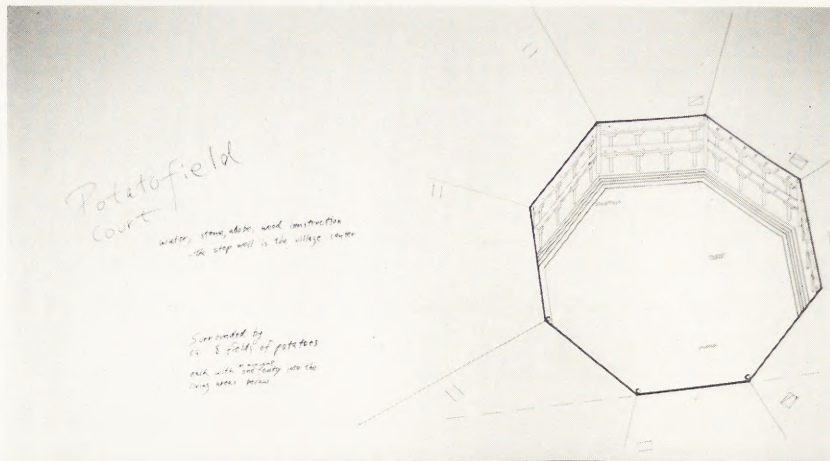 Potatofield
Court
water, stone, adobe, wood construction
the step well is the village center
Surrounded by
8 fields of potatoes
each with entry into the
living areas below